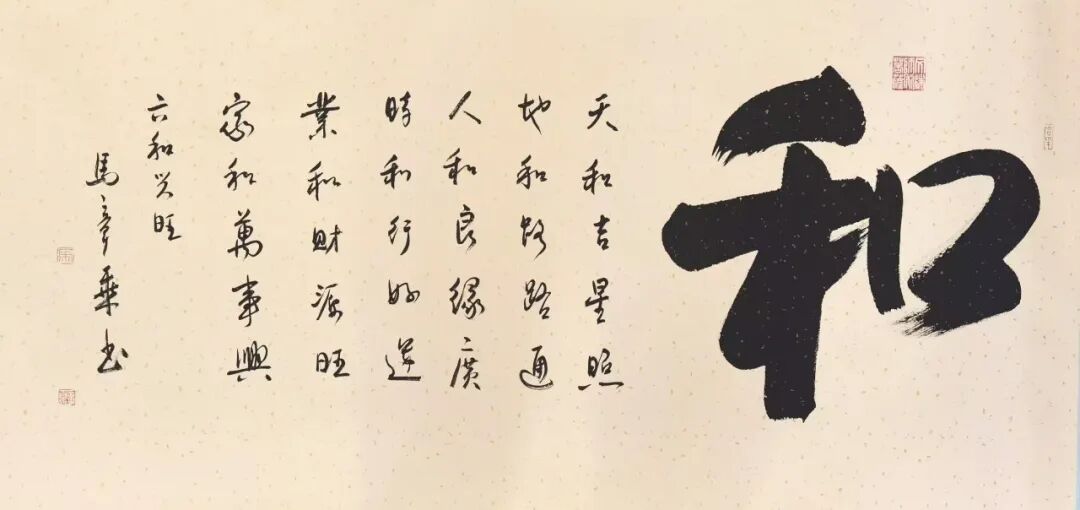 和
天和吉星照
地和路路通
人和良緣廣
時和行好運
業和財源旺
家和萬事興
六和兴旺
馬彦乘书